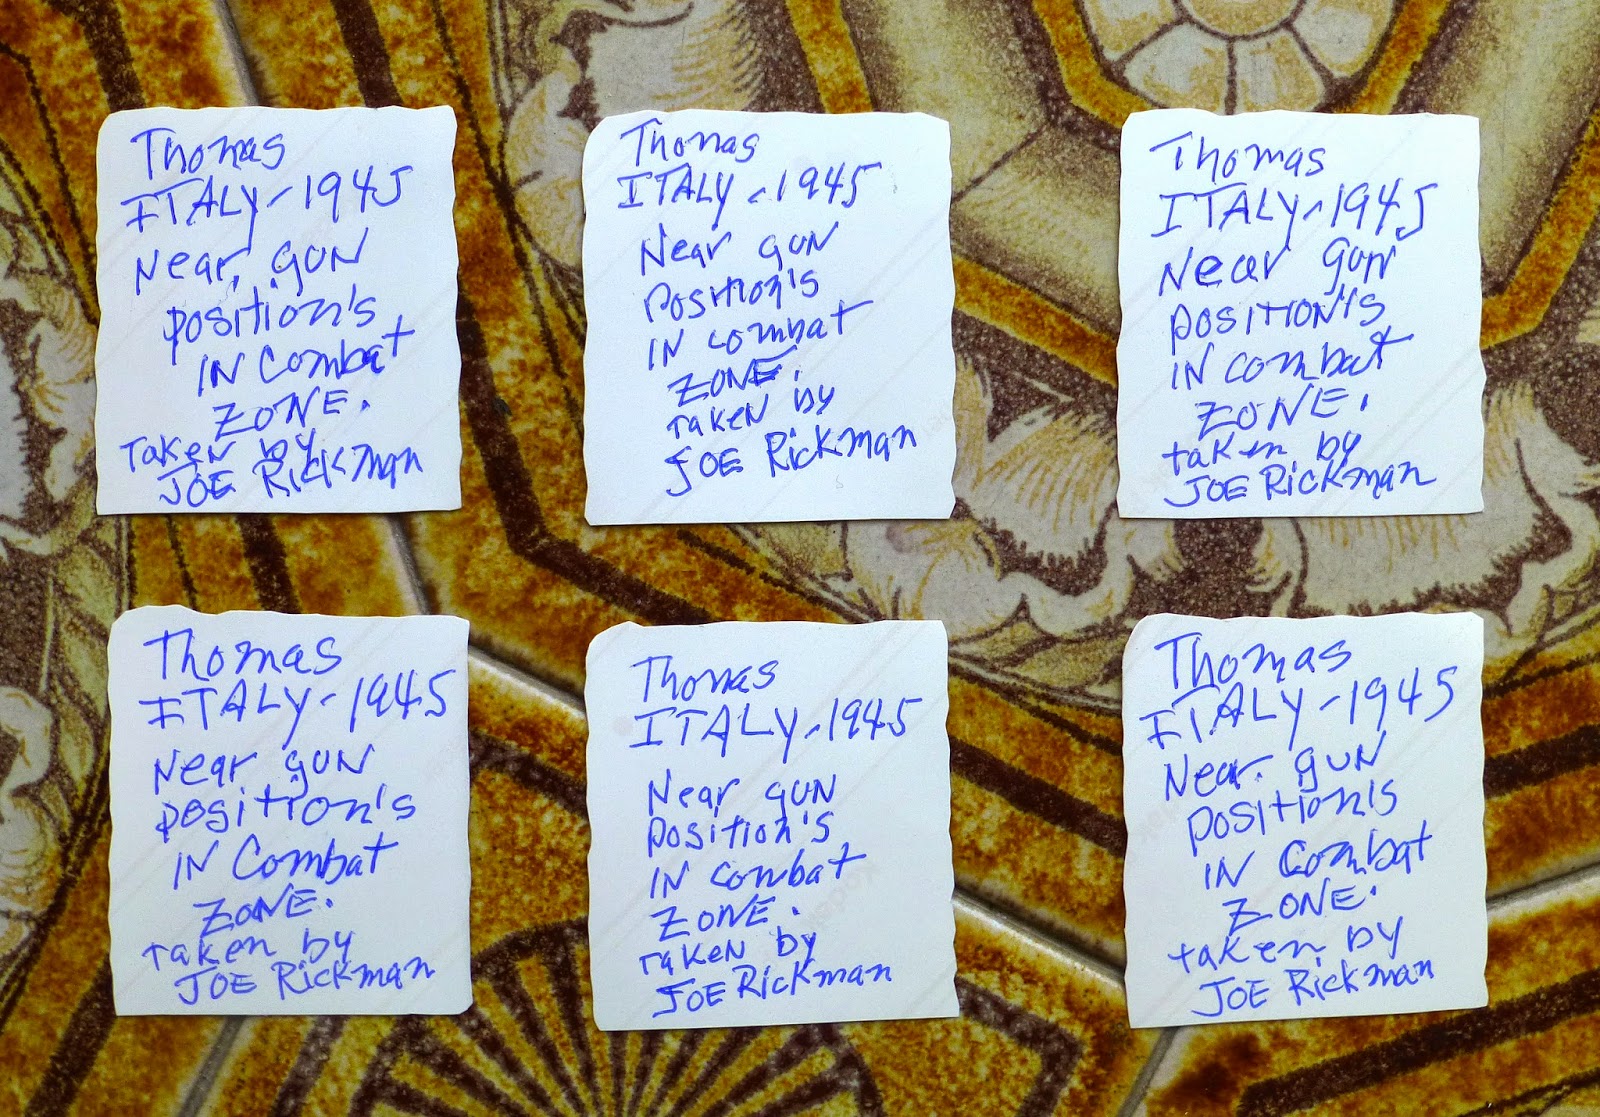 Thomas
ITALY-1945
Near gun
position's
IN Combat
ZONE.
Taken by
JOE Rickman
Thomas
ITALY-1945
Near gun
position's
IN combat
ZONE.
Taken by
JOE Rickman
Thomas
ITALY-1945
Near gun
position's
IN combat
ZONE.
taken by
JOE Rickman
Thomas
ITALY-1945
Near gun
position's
IN Combat
ZONE.
taken by
JOE Rickman
Thomas
ITALY-1945
Near gun
position's
IN combat
ZONE.
Taken by
JOE Rickman
Thomas
ITALY-1945
Near gun
position's
IN Combat
ZONE.
taken by
JOE Rickman